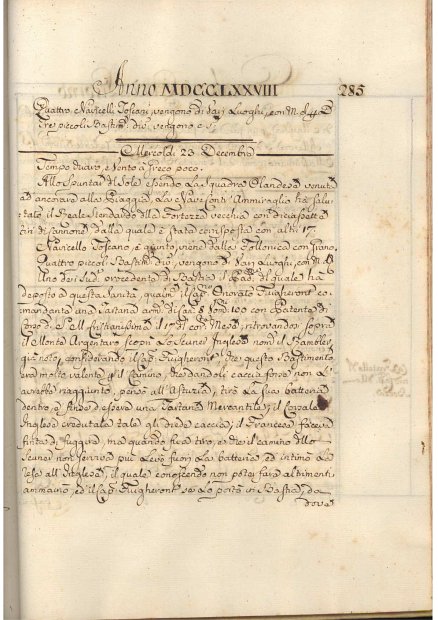 Anno MDCCLXXVIII 285
Quattro Navicelli Tosani, vengono di varj Luoghi, con M. d. 4. P
Tre piccoli Bastim. div. vengono c. S.
Mercoldì 23. Decembre
Tempo vario, e Vento a Greco poco.
Allo spuntar del Sole essendo La Squadra Olandese venuta
ad ancorare alla Spiaggia, La Nave Comt. Ammiraglio ha salu-
tato il Reale Stendardo della Fortezza vecchia con diciasette
tiri di Cannone, dalla quale è stata corrisposta con altri 17.
Navicello Toscano, è giunto, viene dalla Follonica con Grano.
Quattro piccoli Bastim. div., vengono di varj Luoghi, con M. d.
Uno dei Sud. procedente di Bastia il Pad. del quale ha
deposto a questa Sanità, qualm. il Cap. Onorato Guigheront co-
mandante una Tartana arm. di Can. 8 Uom. 100 con Patente di
Corso di S. M. Cristianissima il 17. del cor. Mese, ritrovandosi sopra
il Monte Argentaro scoprì Lo Scuner Inglese nom. il Rambler,
già noto, considerando il Cap. Guigheront che questo Bastimento
era molto valente p. il Camino, che dandoli caccia forse non l'
avrebbe raggiunto, pensò all'Asturzia, tirò La sua batteria
dentro, e finse d'essere una Tartana Mercantile; il Corsale
Inglese credutala tale gli diede caccia; il Francese faceva
finta di fuggire, ma quando fu a tiro, e che il camino dello
Scuner non serviva più Levò fuori La batteria ed intimò La
resa all'Inglese, il quale conoscendo non poter fare altrimenti
ammainò, ed il Cap. Guigheront se Lo portò in Bastia, da
dova